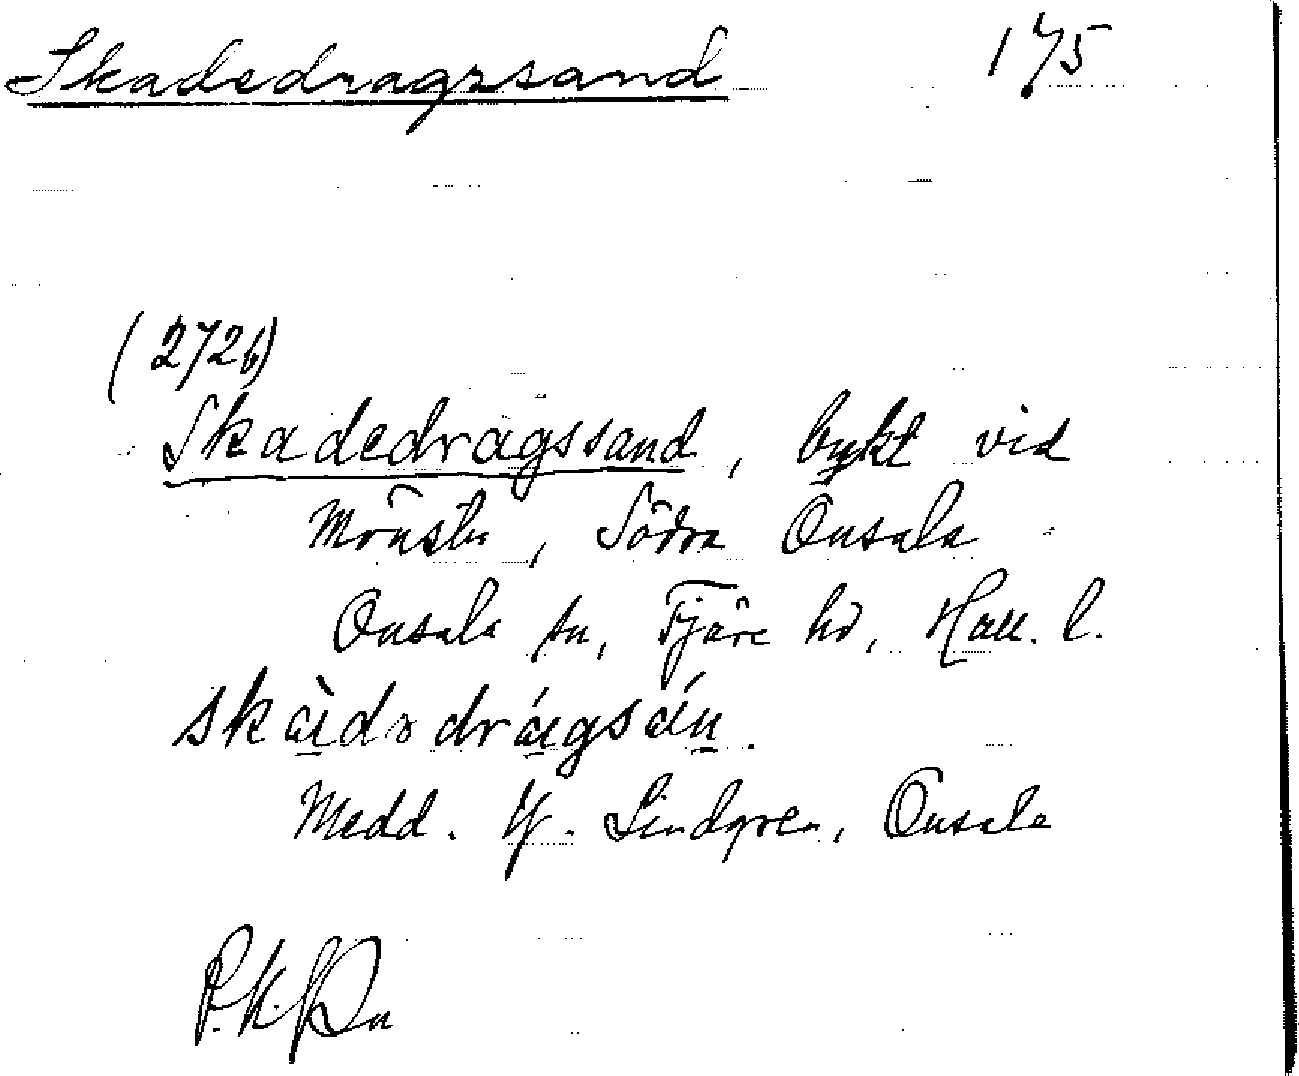 Skadedragssand 175
(2726)
Skadedragssand, bukt vid
Mönster, Södra Onsala
Onsala sn, Fjäre hd, Hall. l.
Medd. Hj. Lindgren, Onsala